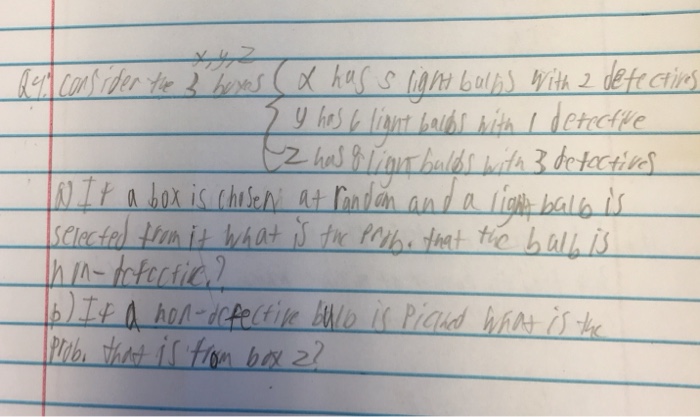 x, y, z
Q4: Consider the 3 boxes { x has 5 light bulbs with 2 defectives
y has 6 light bulbs with 1 defective
z has 8 light bulbs with 3 defectives
a) If a box is chosen at random and a light bulb is
selected from it what is the prob. that the bulb is
non-defective?
b) If a non-defective bulb is picked what is the
prob. that is from box z?